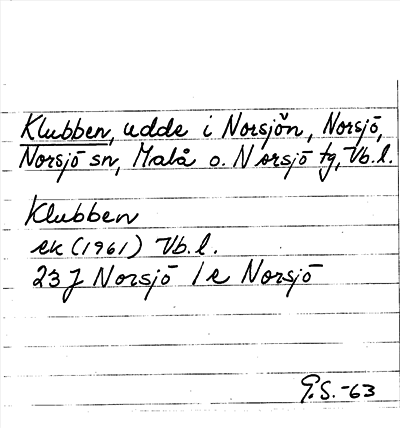 Klubben, udde i Norsjön, Norsjö,
Norsjö sn, Malå o. Norsjö tg, Vb.l.
Klubben
ek (1961) Vb.l.
23 J Norsjö 1 e Norsjö
G.S.-63